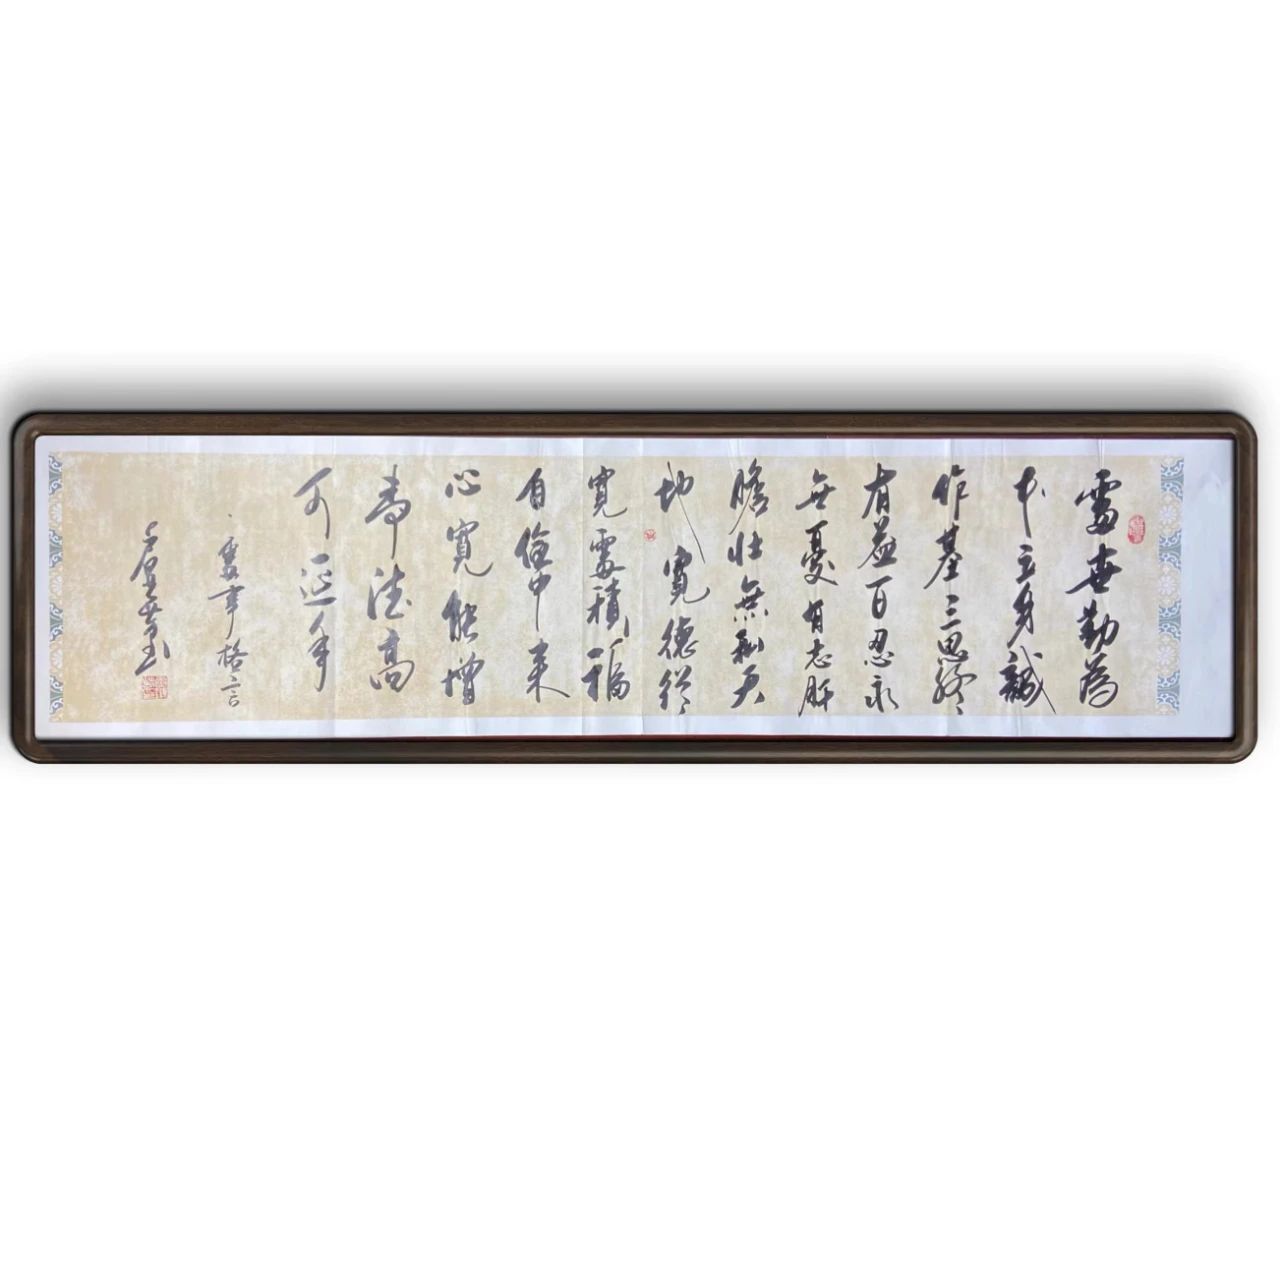 處世勤為
本立身誠
作基三思終
有益百忍永
無憂有志胆
膽壯無私天
地寬德從
寬處積福
自儉中来
心寬能增
壽德高
可延年
處事格言